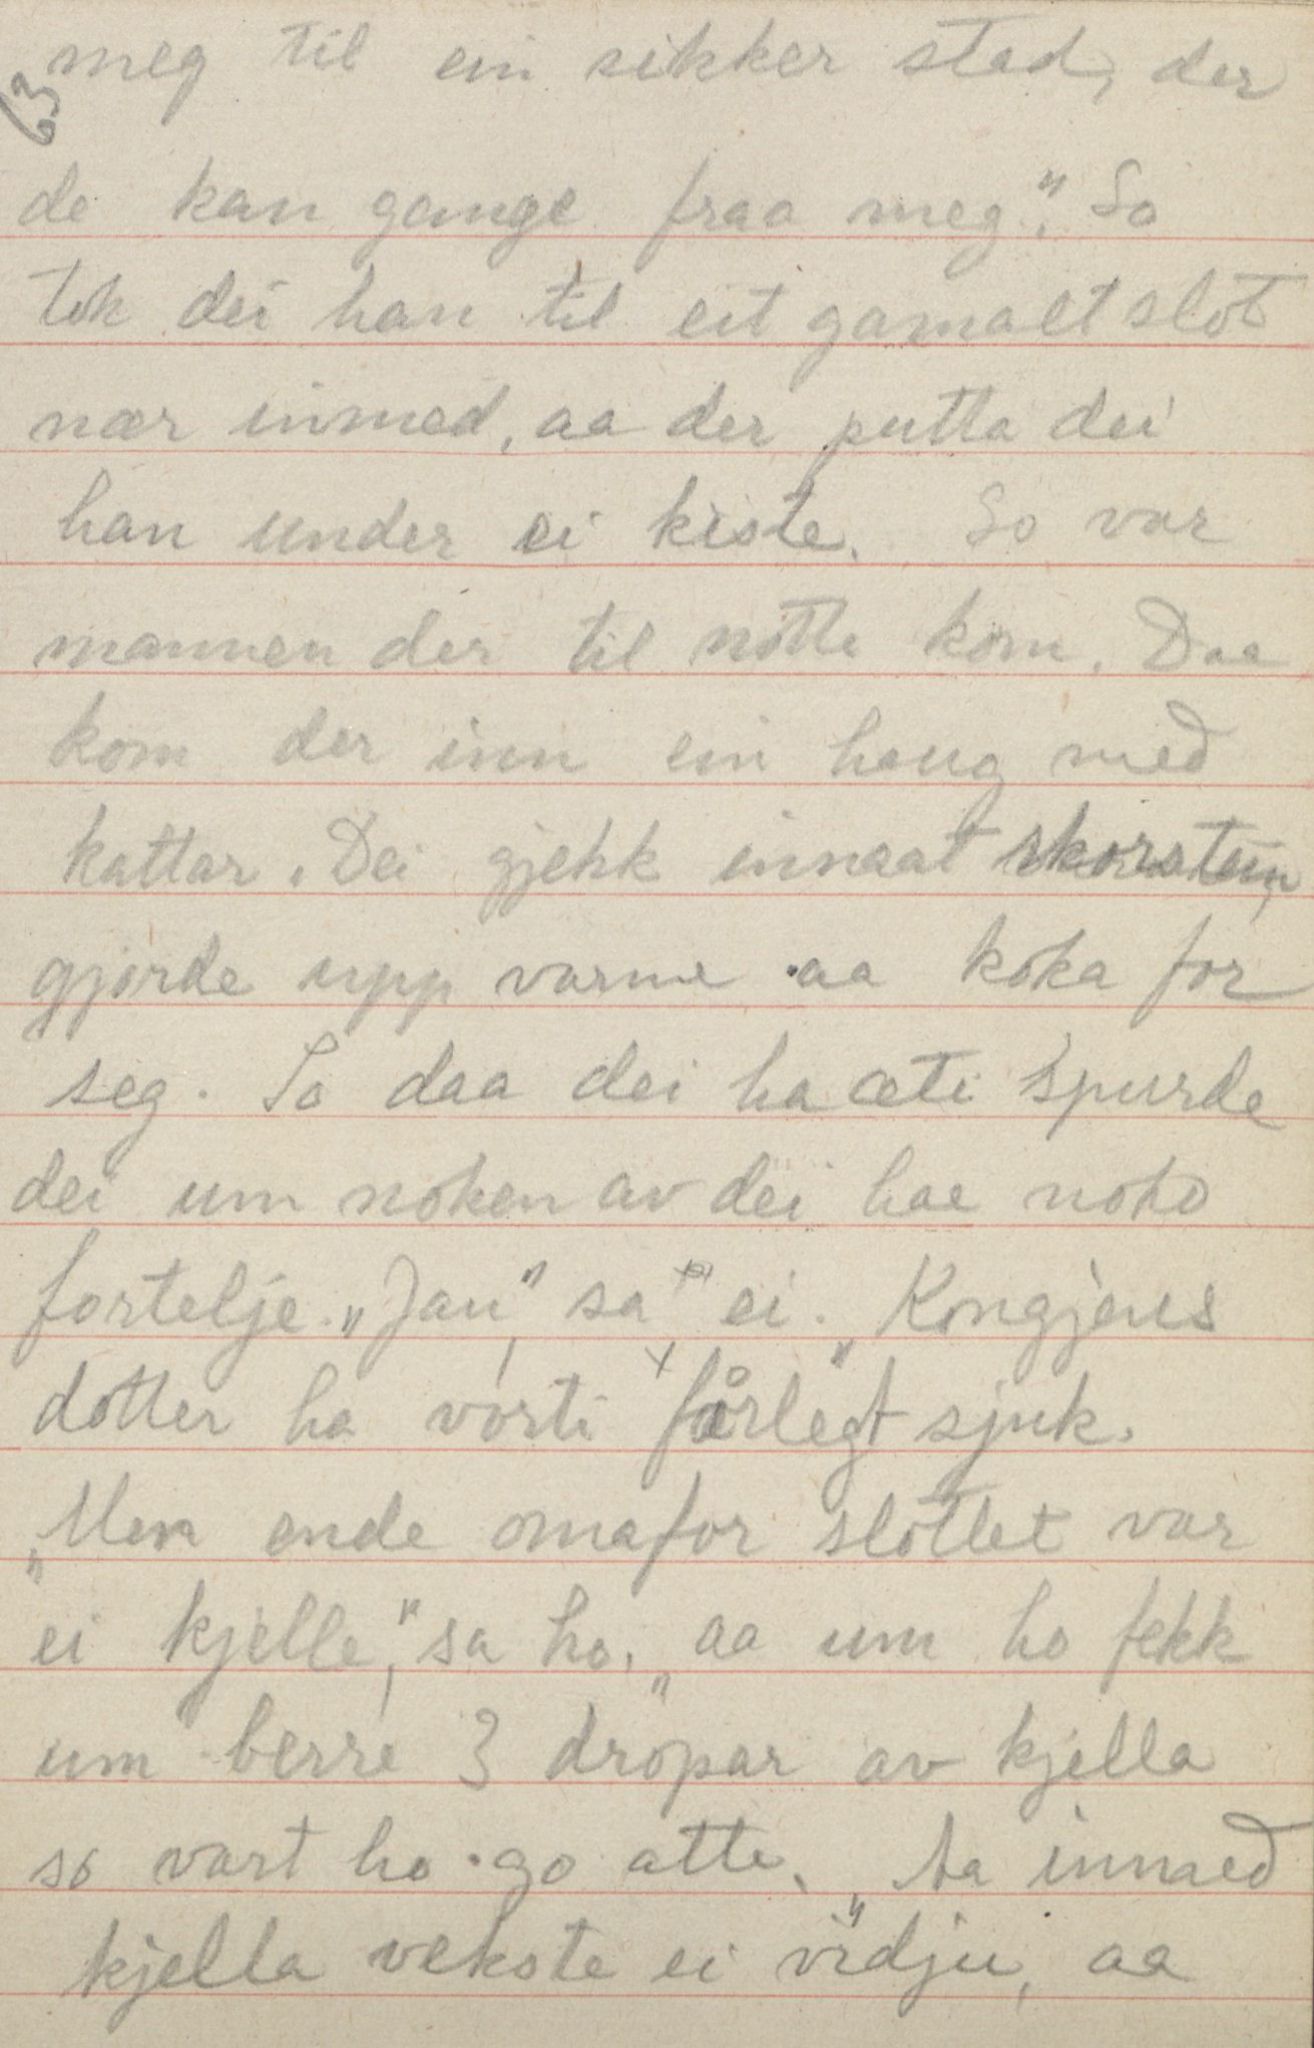 63
meg til ein sikker stad, der
de kan gange fraa meg." So
tok dei han til eit gamalt slot
nær inmed, aa der putta dei
han under ei kiste. So var
mannen der til nøtte kom. Daa
kom der inn ein haug med
kattar. Dei gjekk innaat skorstein,
gjorde upp varme aa koka for
seg. So daa dei ha æti spurde
dei um noken av dei hae noko
fortelje. "Jau", sa ei. "Kongjens
dotter ha vorti fårlegt sjuk.
"Men ende omafor slottet var
ei kjelle," sa ho, "aa um ho fekk
um berre 3 dropar av kjella
so vart ho go atte. "Aa innaed
kjella vekste ei vidju, aa